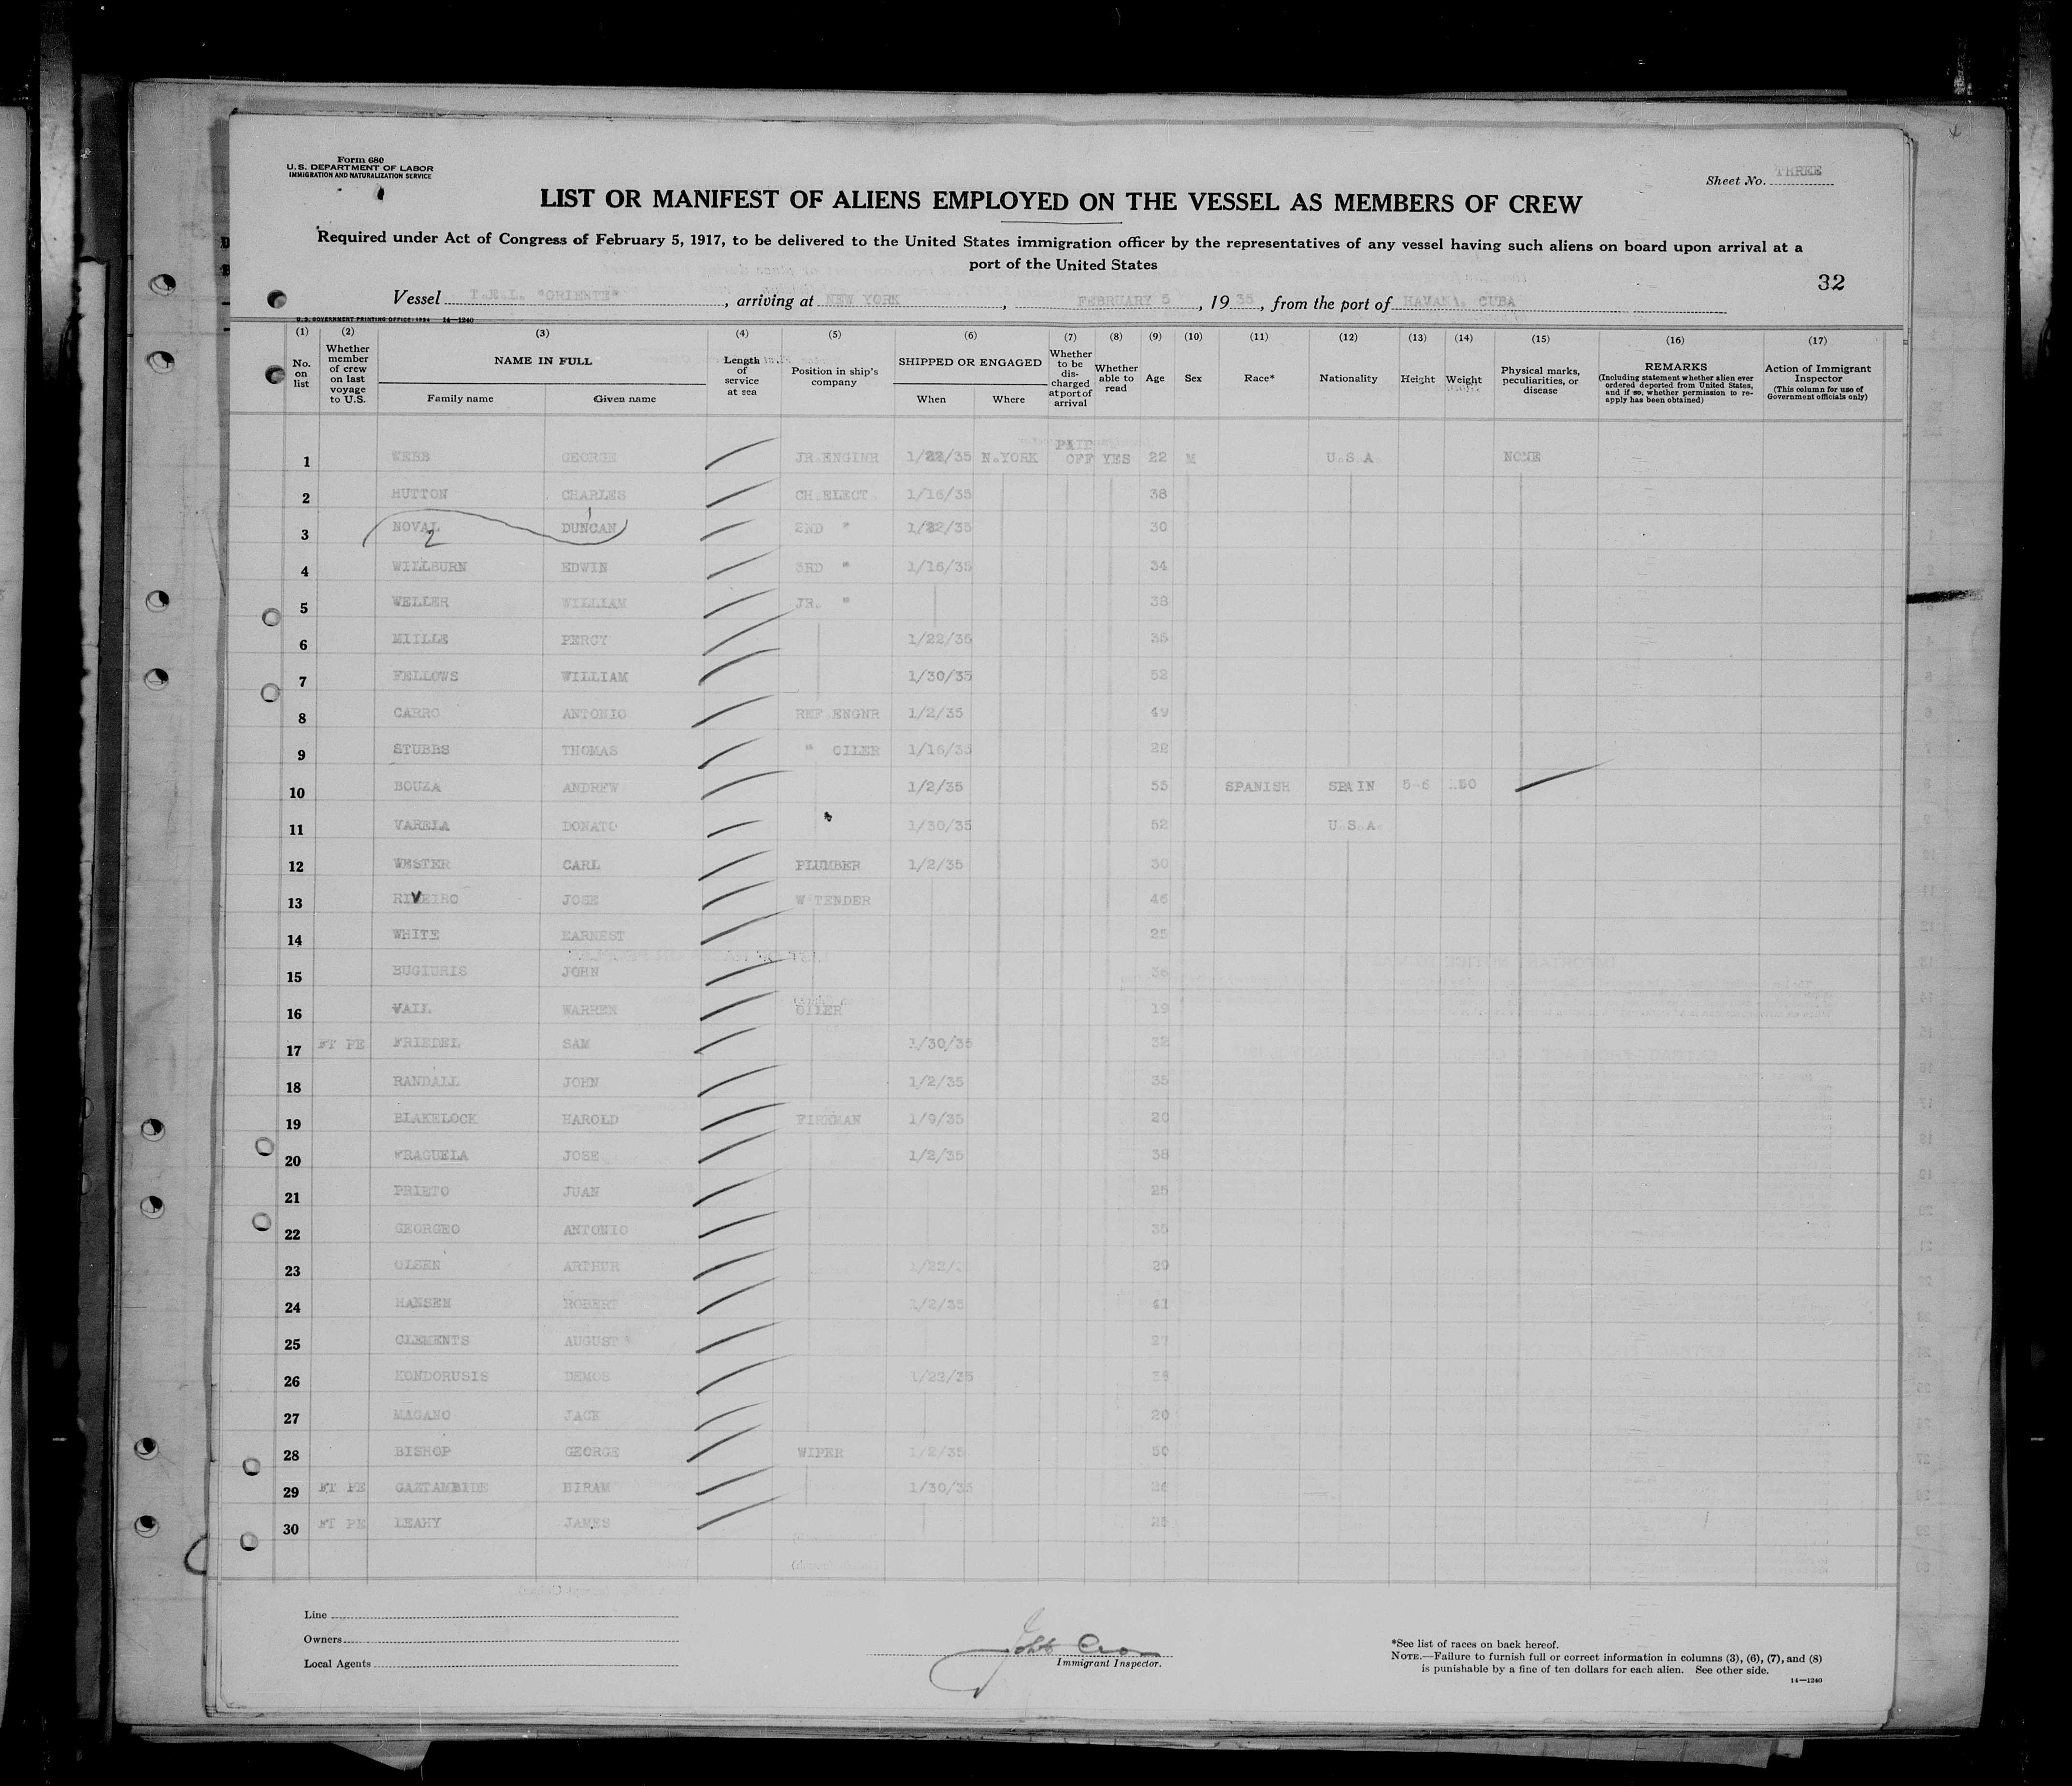 Form 680
U. S. DEPARTMENT OF LABOR
IMMIGRATION AND NATURALIZATION SERVICE
Sheet No. THREE
LIST OR MANIFEST OF ALIENS EMPLOYED ON THE VESSEL AS MEMBERS OF CREW
Required under Act of Congress of February 5, 1917, to be delivered to the United States immigration officer by the representatives of any vessel having such aliens on board upon arrival at a
port of the United States
32
Vessel T.E.L. "ORIENTE", arriving at NEW YORK, FEBRUARY 5, 1935, from the port of HAVANA, CUBA
U. S. GOVERNMENT PRINTING OFFICE: 1934 14—1240
(1) (2) (3) (4) (5) (6) (7) (8) (9) (10) (11) (12) (13) (14) (15) (16) (17)
No. on list
Whether member of crew on last voyage to U.S.
NAME IN FULL
Family name
Given name
Length of service at sea
Position in ship's company
SHIPPED OR ENGAGED
When
Where
Whether to be discharged at port of arrival
Whether able to read
Age
Sex
Race*
Nationality
Height
Weight
Physical marks, peculiarities, or disease
REMARKS
(Including statement whether alien ever ordered deported from United States, and if so, whether permission to re-apply has been obtained)
Action of Immigrant Inspector
(This column for use of Government officials only)
1 WEBB GEORGE JR.ENGINR 1/22/35 N.YORK PAID OFF YES 22 M U.S.A. NONE
2 HUTTON CHARLES CH.ELECT. 1/16/35 38
3 NOVAL 2 DUNCAN 1 2ND " 1/22/35 30
4 WILLBURN EDWIN 3RD " 1/16/35 34
5 WELLER WILLIAM JR. " 38
6 MIILLE PERCY 1/22/35 35
7 FELLOWS WILLIAM 1/30/35 52
8 CARRO ANTONIO REF ENGNR 1/2/35 49
9 STUBBS THOMAS " OILER 1/16/35 22
10 BOUZA ANDREW 1/2/35 55 SPANISH SPAIN 5-6
11 VARELA DONATO 1/30/35 52 U.S.A.
12 WESTER CARL PLUMBER 1/2/35 30
13 RIVEIRO JOSE W TENDER 46
14 WHITE EARNEST 25
15 BUGIURIS JOHN 36
16 VAIL WARREN OILER 19
17 FT PE FRIEDEL SAM 1/30/35 32
18 RANDALL JOHN 1/2/35 35
19 BLAKELOCK HAROLD FIREMAN 1/9/35 20
20 FRAGUELA JOSE 1/2/35 38
21 PRIETO JUAN 25
22 GEORGEO ANTONIO 35
23 OLSEN ARTHUR 1/22/35 29
24 HANSEN ROBERT 1/2/35 41
25 CLEMENTS AUGUST 27
26 KONDORUSIS DEMOS 1/22/35
27 MAGANO JACK 20
28 BISHOP GEORGE WIPER 1/2/35 50
29 FT PE GAZTAMBIDE HIRAM 1/30/35 24
30 FT PE LEAHY JAMES 25
Line
Owners
Local Agents
Immigrant Inspector.
*See list of races on back hereof.
NOTE.—Failure to furnish full or correct information in columns (3), (6), (7), and (8)
is punishable by a fine of ten dollars for each alien. See other side.
14—1240